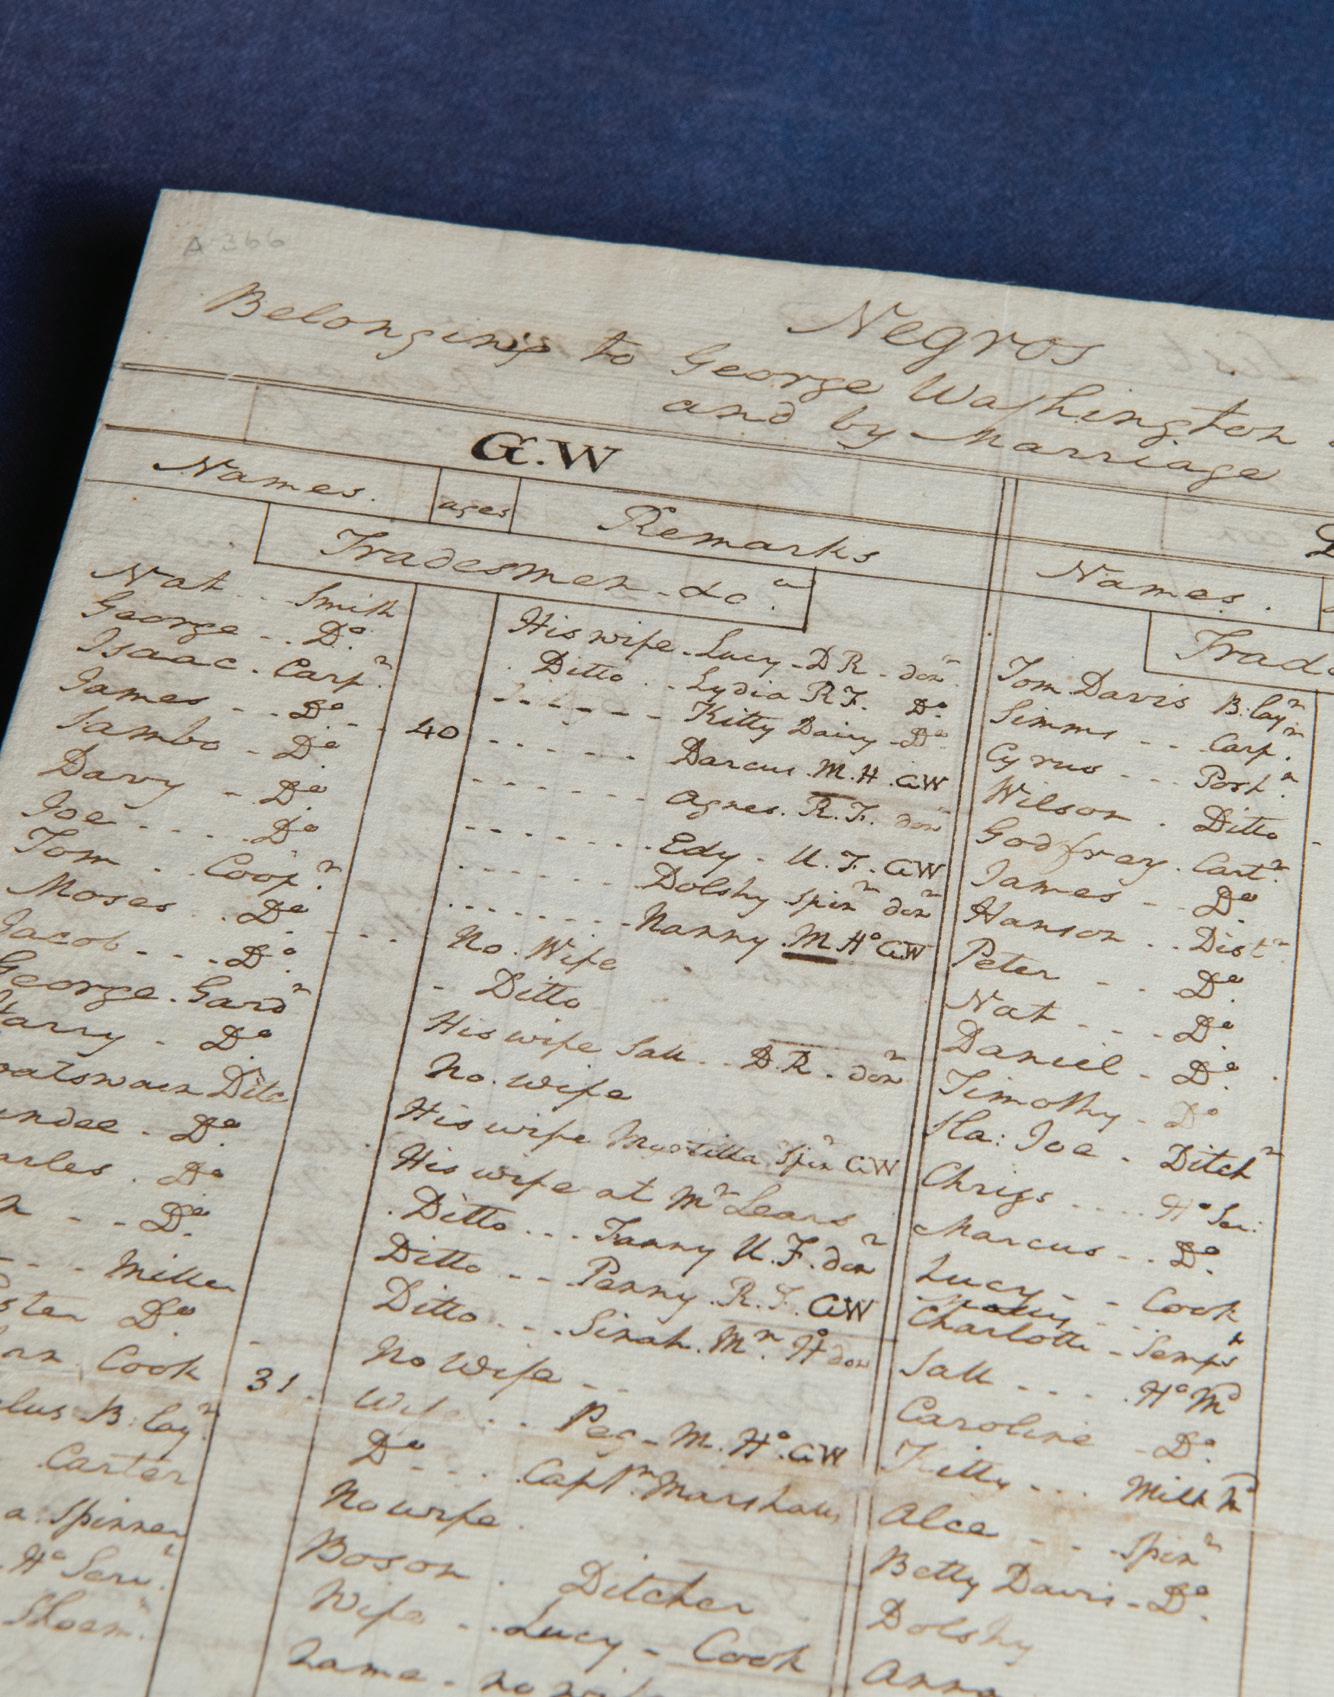 A 366
Negros
Belonging to George Washington
and by Marriage
G.W
Names. ages Remarks
Names.
Tradesmen &c.a
Nat - - Smith His wife - Lucy - DR - dowr
George - - Do Ditto - - Lydia R.F. Do
Isaac - Carpr - - - - - - Kitty Dairy - Do
James - - Do - - 40 - - - - - Darcus M.H. GW
Sambo - Do - - - - - - Agnes. R.F. dowr
Davy - Do - - - - - - - Edy - U.F. GW
Joe - - - - Do - - - - - - Dolshy Spinr dowr
Tom - - Coopr - - - - - - - Nanny M Ho GW
Moses - - Do - - - No. Wife
Jacob - - - - Do - Ditto
George. Gardr His wife Sall - - D.R - dowr
Harry - Do No. wife
oatswain Ditc His wife Myrtilla Spinr GW
undee - Do His wife at Mr Lears
arles. Do Ditto - - - Fanny U.F. dowr
n - - - Do Ditto - - Penny. R.F. GW
- - - - Miller Ditto - - - Sinah. Mn. Ho dow
ster Do No Wife - -
nn, Cook 31. Wife - - Peg - M. Ho. GW
lus B: layr Do - - - Captn Marshalls
Carter No wife.
a Spinner Boson. Ditcher
Ho Servt Wife - - Lucy - Cook
Shoemr Lame - no wife
Tom Davis B: layr
Simms - - Carpr
Cyrus - - - Postn
Wilson. Ditto
Godfrey. Cartr
James - - Do
Hanson - - Distr
Peter - - - Do
Nat - - - Do
Daniel - Do
Timothy - Do
Ha: Joe - Ditchr
Chrigs - - - - Ho Ser:
Marcus - - Do
Lucy - - Cook
Charlotte - Sempss
Sall - - - - Ho Md
Caroline - Do
Kitty - - - Milk Md
Alce - - - Spinr
Betty Davis - Do
Dolshy
Anna